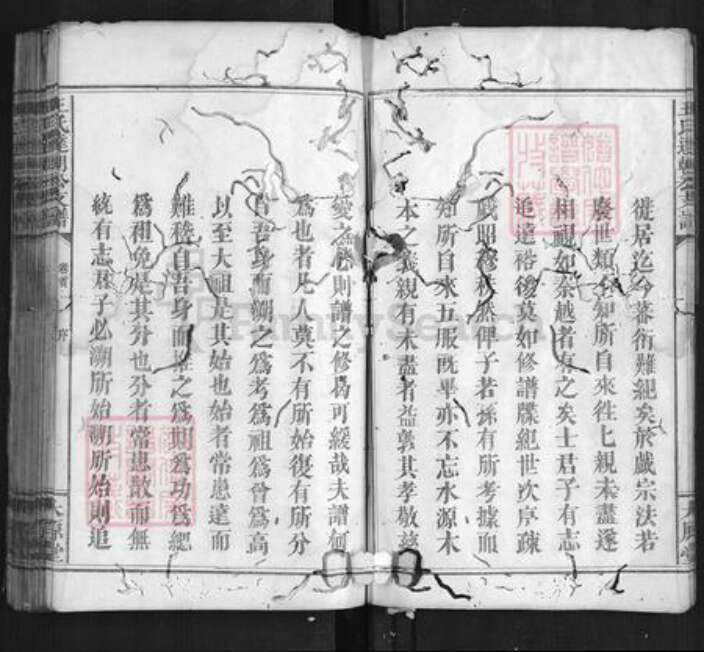 徙居迄今蕃衍難紀矣於戲宗法若
廢世類全知所自來徃七親未盡遂
相視如秦越者有之矣士君子有志
追遠裕後莫如修譜牒紀世次序疎
戚昭穆秩然俾子若孫有所考據而
知所自來五服既畢亦不忘水源木
本之義親有未盡者益敦其孝敬慈
愛之心則譜之修曷可緩哉夫譜何
為也者凡人莫不有所始復有所分
自吾身而溯之為考為祖為曾為高
以至大祖是其始也始者常患遠而
難稽自吾身而推之為 為功為緦
為袒免是其分也分者常患散而無
統有志君子必溯所始溯所始則追
王氏達朝公支譜
卷首
序
太原堂
FamilySearch